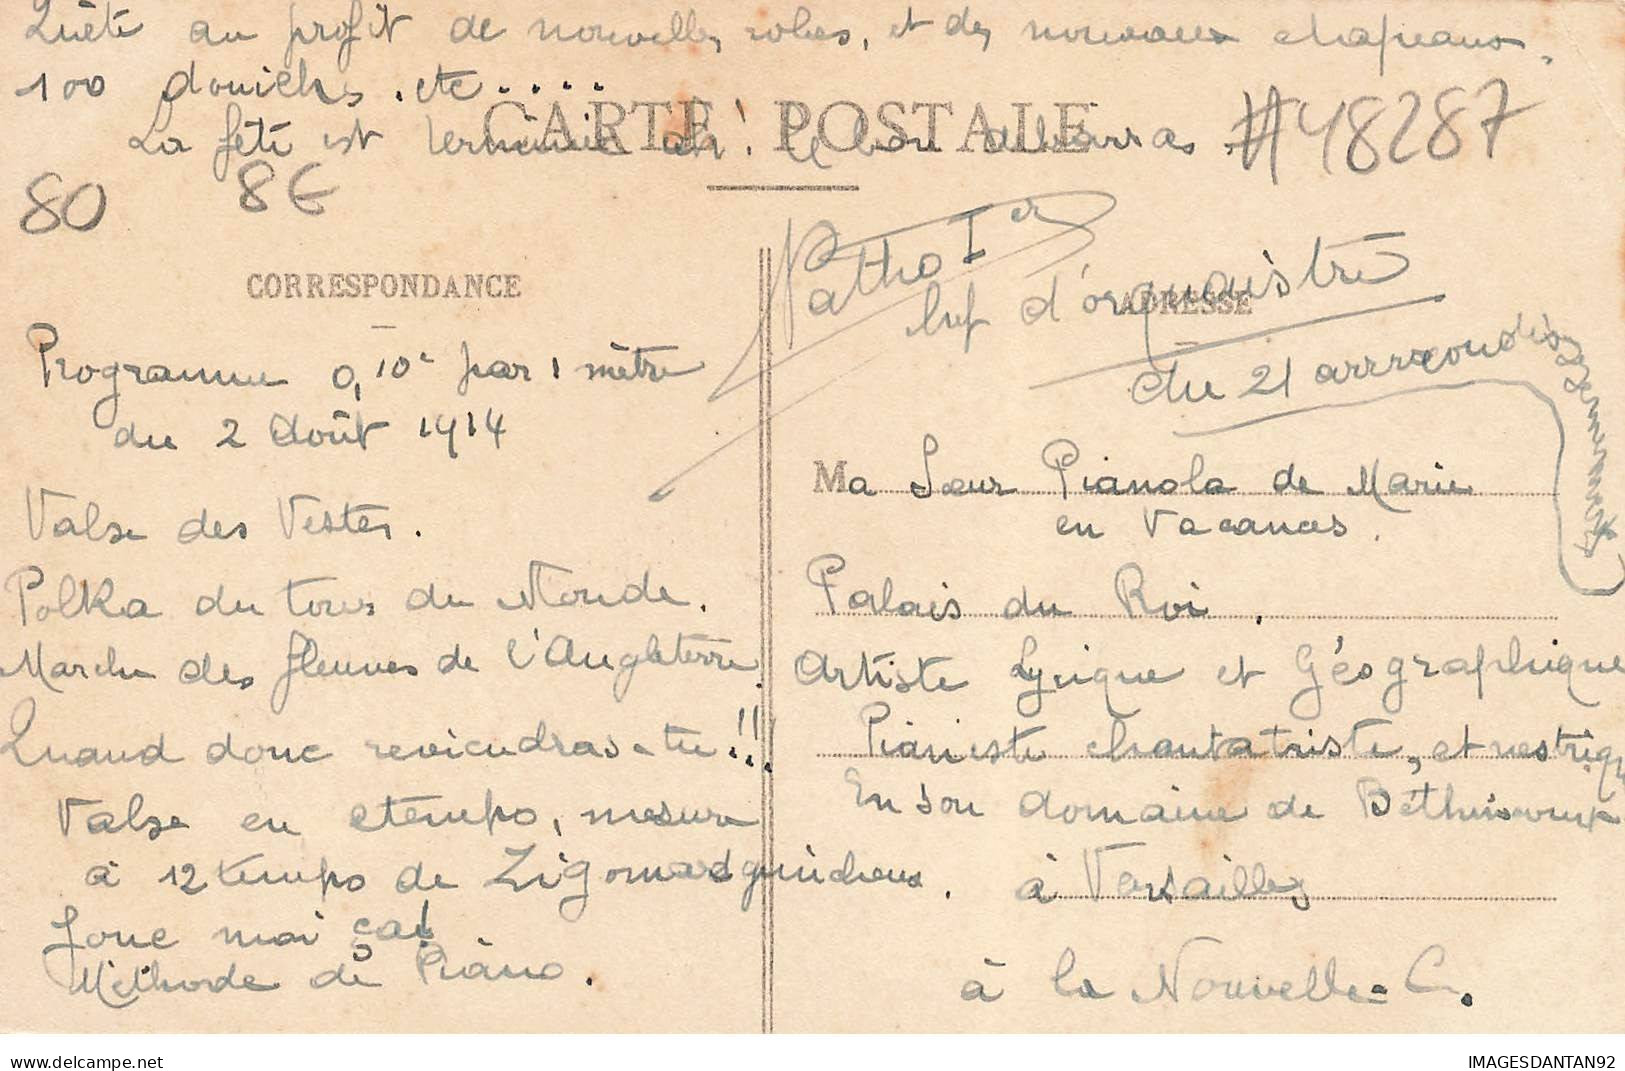 Quête au profit de nouvelles robes, et des nouveaux chapeaux.
100 douiches. etc.....
CARTE POSTALE
La fête est terminée ah! le bon débarras.
#48287
80 8€
Patho Ier
CORRESPONDANCE
ADRESSE
hef d'orquaistre
du 21 arrrrxondissssemmmment
Programme 0,10c par 1 mètre
du 2 Août 1914
Ma Soeur Pianola de Marie
en Vacances.
Valse des Vestes.
Polka du tour du Monde.
Marche des fleuves de l'Angleterre.
Quand donc reviendras-tu!!!
Valse en etempo, mesure
à 12 temps de Zigomardguincheux.
Joue moi ça!
Méthode de Piano.
Palais du Roi.
Artiste Lyrique et Géographique
Pianiste chantatriste, et
En son domaine de
à Versailles
à la Nouvelle-C.
delcampe.net
IMAGESDANTAN92